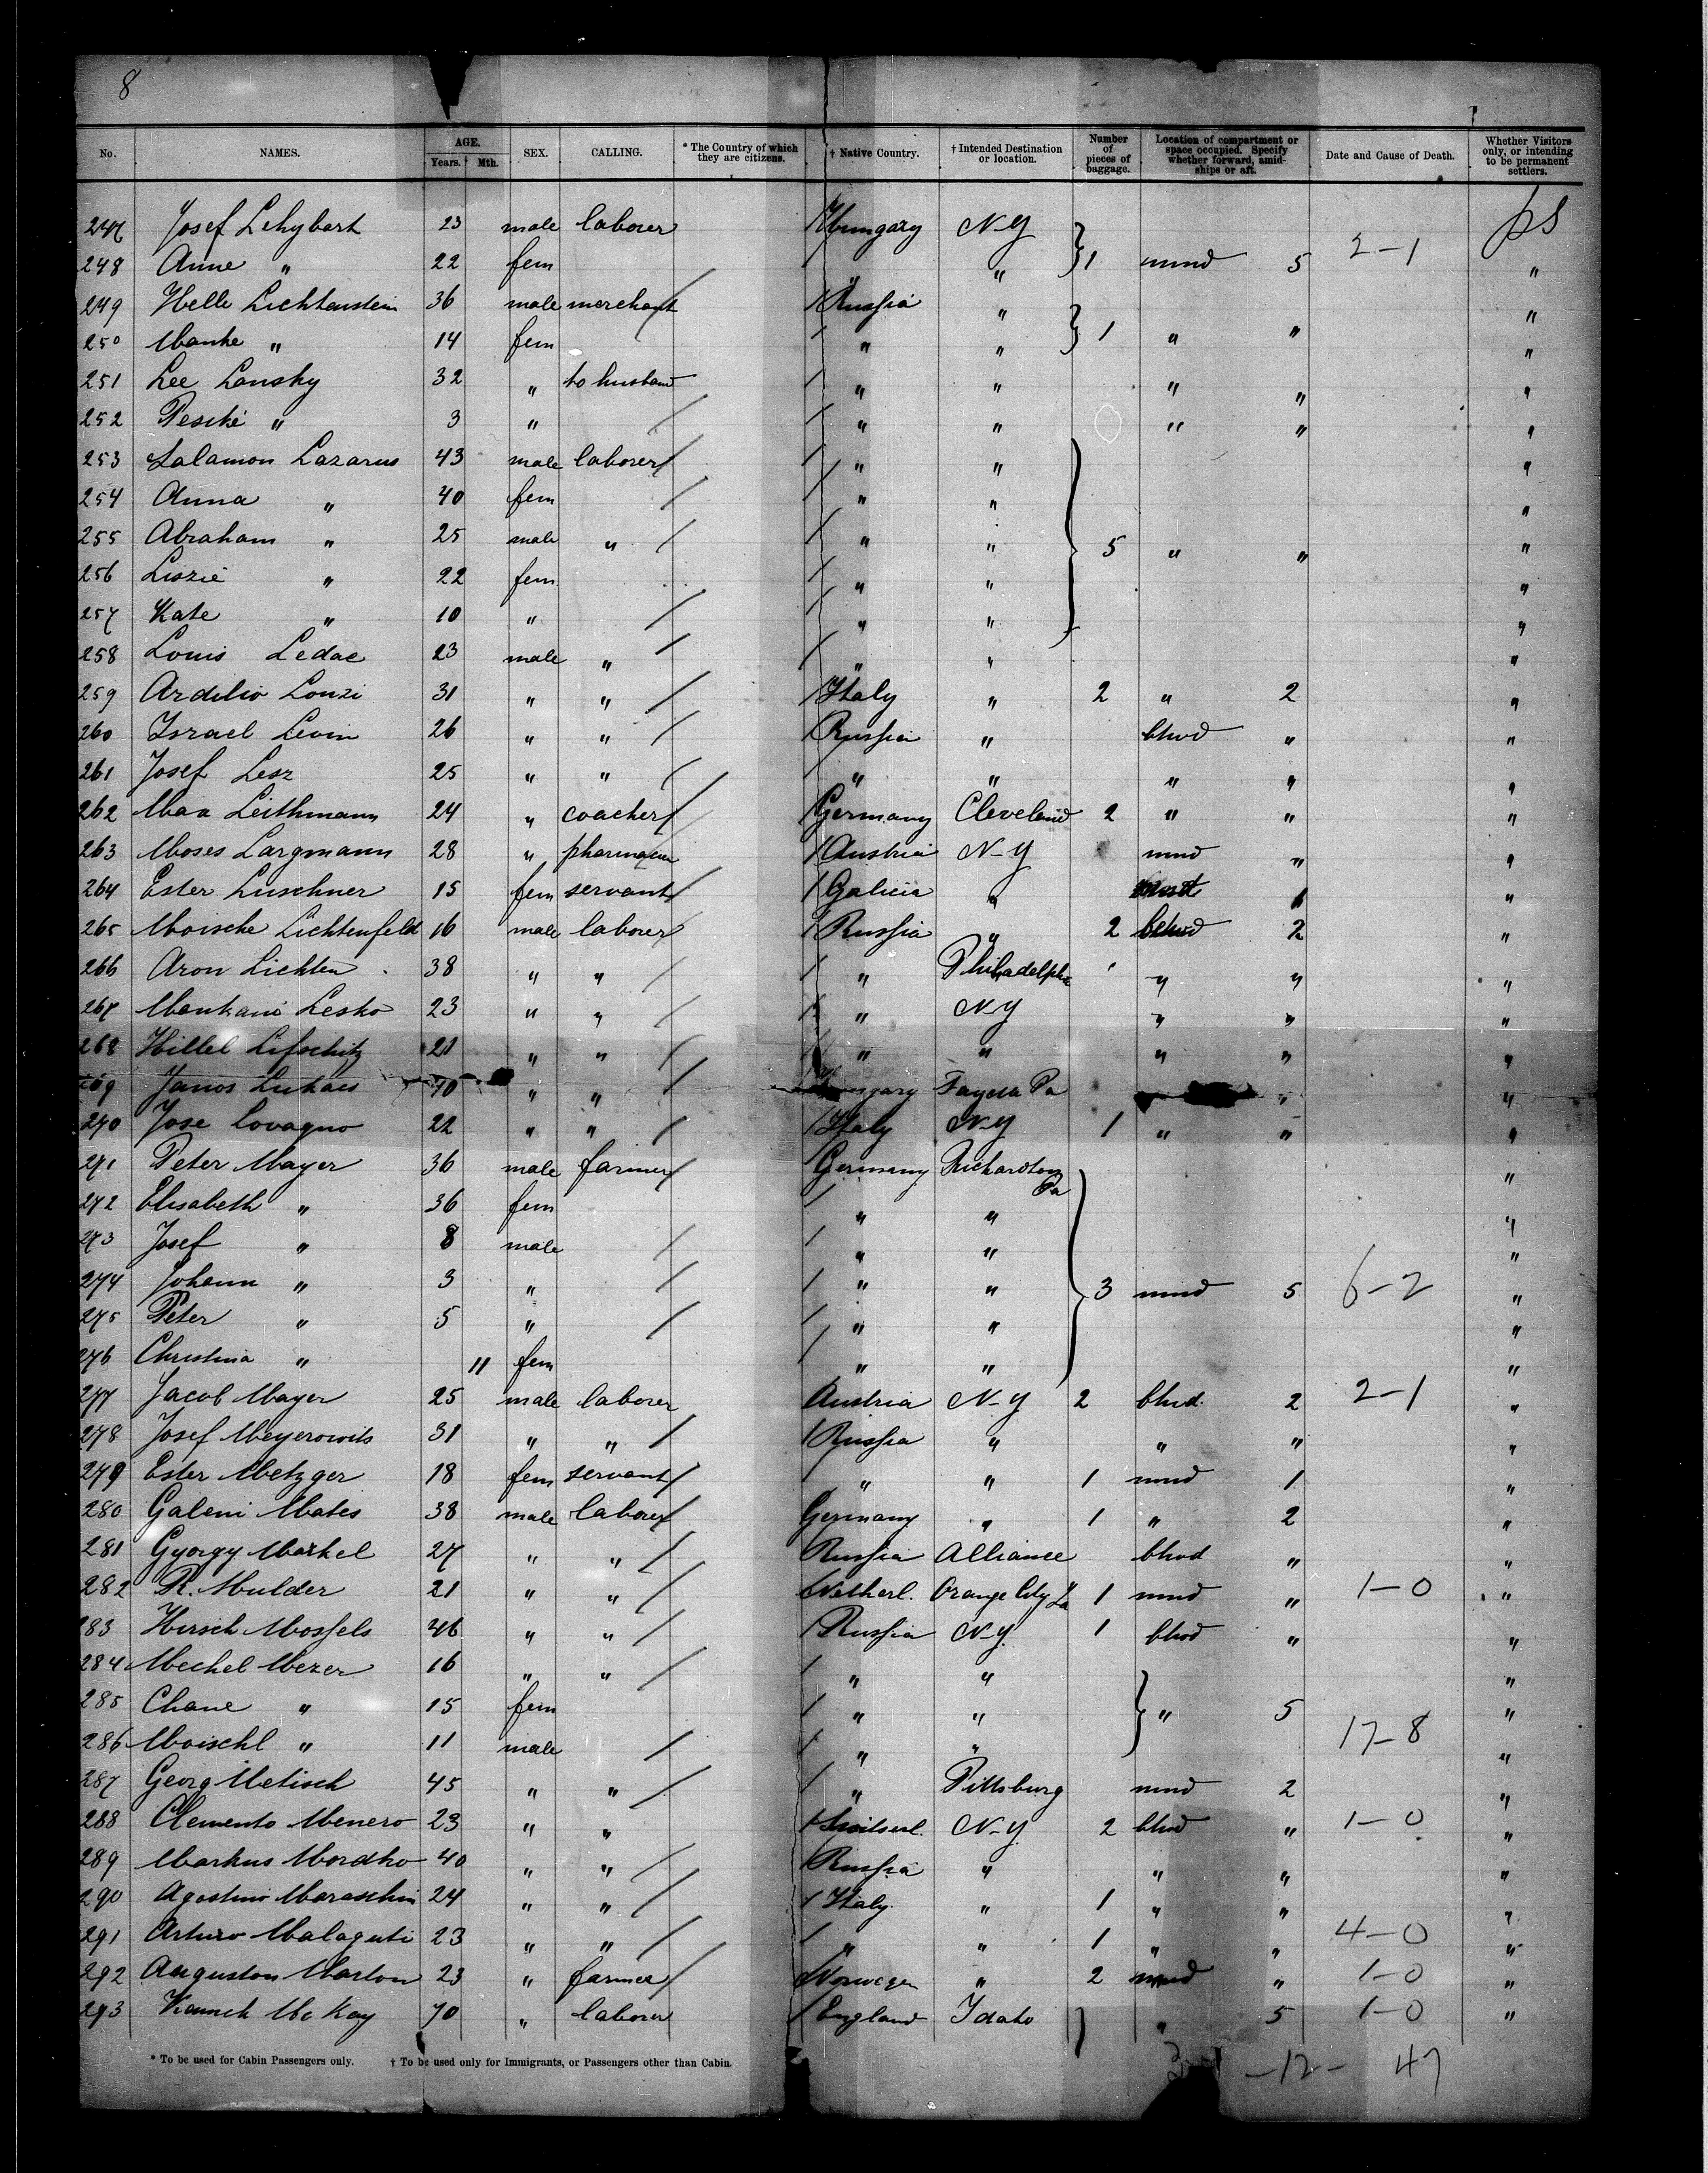 8
No. NAMES. AGE. Years. Mth. SEX. CALLING. * The Country of which they are citizens. † Native Country. † Intended Destination or location. Number of pieces of baggage. Location of compartment or space occupied. Specify whether forward, amidships or aft. Date and Cause of Death. Whether Visitors only, or intending to be permanent settlers.
247 Josef Lehybert 23 male laborer Hungary N-Y ps
248 Anne " 22 fem " " 1 mnd 5 2-1 "
249 Helle Lichtenstein 36 male merchant Russia " "
250 Manke " 14 fem " " 1 " " "
251 Lee Lansky 32 " to husband " " " " "
252 Peschi " 3 " " " " " "
253 Salamon Lazarus 43 male laborer " " "
254 Anna " 40 fem " " "
255 Abraham " 25 male " " " 5 " " "
256 Liszie " 22 fem " " "
257 Kate " 10 " " " "
258 Louis Ledac 23 male " " " "
259 Ardilio Lonzi 31 " " Italy " 2 " 2 "
260 Israel Levin 26 " " Russia " bhwd " "
261 Josef Lesz 25 " " " " " " "
262 Max Leithmann 24 " coacher Germany Cleveland 2 " " "
263 Moses Largmann 28 " Austria N-Y mnd " "
264 Ester Luschner 15 fem servant Galicia " 1 "
265 Moische Lichtenfeld 16 male laborer Russia " 2 bhwd 2 "
266 Aron Lichten 38 " " " Philadelphia " " "
267 Mankani Lesko 23 " " " N-Y " " "
268 Hillel Lifschitz 21 " " " " " " "
269 Janos Lukacs 40 " " Hungary Pa " "
270 Jose Lovagno 22 " " Italy N-Y 1 " " "
271 Peter Mayer 36 male farmer Germany Richardton Pa "
272 Elisabeth " 36 fem " " "
273 Josef " 8 male " " "
274 Johann " 3 " " " 3 mnd 5 6-2 "
275 Peter " 5 " " " "
276 Christina " 11 fem " " "
277 Jacob Mayer 25 male laborer Austria N-Y 2 bhwd. 2 2-1 "
278 Josef Meyerowits 31 " " Russia " " " "
279 Ester Metzger 18 fem servant " " 1 mnd 1 "
280 Galeni Mates 38 male laborer Germany " 1 " 2 "
281 Gyorgy Markel 27 " " Russia Alliance bhwd " "
282 R. Mulder 21 " " Netherl. Orange City Ia 1 mnd " 1-0 "
283 Hirsch Mossels 46 " " Russia N-Y. 1 bhwd " "
284 Mechel Mezer 16 " " " " "
285 Chane " 15 fem " " " 5 "
286 Moischl " 11 male " " 17-8 "
287 Georg Metisch 45 " " " Pittsburg mnd 2 "
288 Clemento Menero 23 " " Switserl. N-Y 2 bhwd " 1-0 "
289 Markus Mordko 40 " " Russia " " " "
290 Agostino Maraschin 24 " " Italy. " 1 " " "
291 Arturo Malaguti 23 " " " " 1 " " 4-0 "
292 Auguston Marton 23 " farmer Norwegen " 2 mnd " 1-0 "
293 McKay 70 " laborer England Idaho " 5 1-0 "
* To be used for Cabin Passengers only. † To be used only for Immigrants, or Passengers other than Cabin.
-12- 47